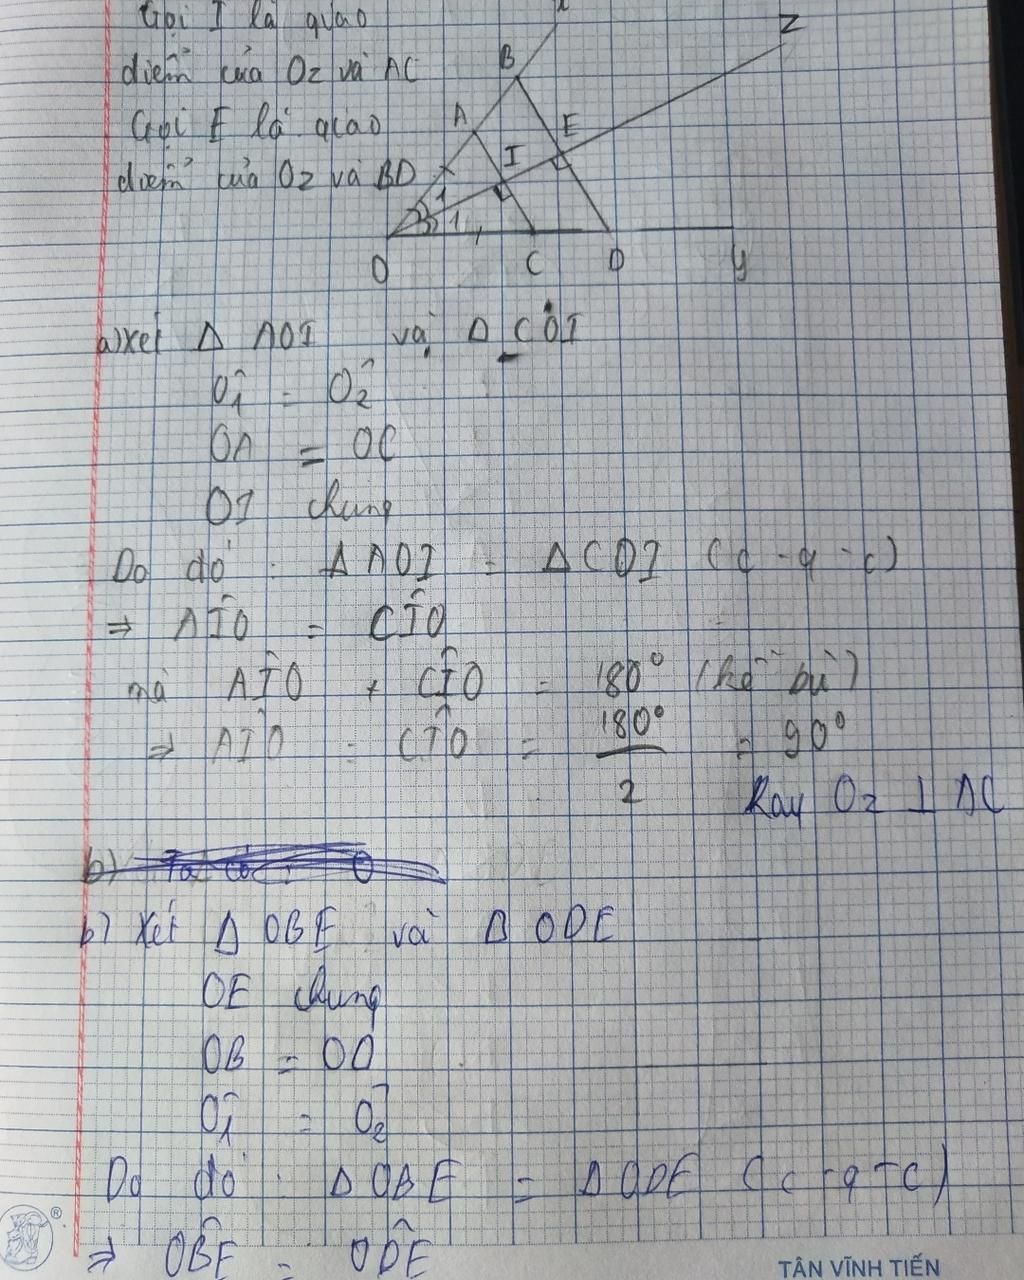 Gọi I là giao
điểm của Oz và AC
Gọi E là giao
điểm của Oz và BD
x
z
B
A
E
I
1
1
O
C
D
y
a) Xét Δ AOI và Δ COI
Ô1 = Ô2
OA = OC
OI chung
Do đó : Δ AOI = Δ COI (c - g - c)
⇒ AÎO = CÎO
mà AÎO + CÎO = 180° (kề bù)
⇒ AÎO = CÎO = 180°/2 = 90°
Hay Oz ⊥ AC
b) Ta có : O
b) Xét Δ OBE và Δ ODE
OE chung
OB = OD
Ô1 = Ô2
Do đó : Δ OBE = Δ ODE (c - g - c)
⇒ OB̂E = OD̂E
®
TÂN VĨNH TIẾN